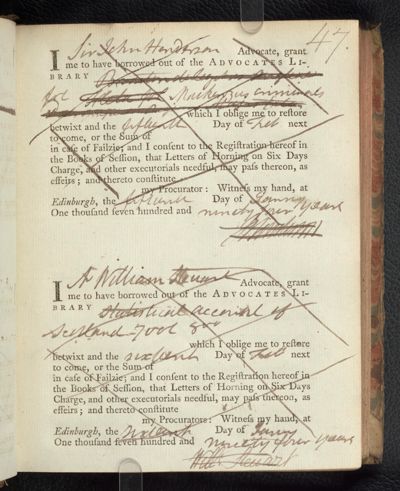 47.
I Sir John Henderson Advocate, grant
me to have borrowed out of the ADVOCATES LI-
BRARY
Mackenzies criminals
which I oblige me to restore
betwixt and the fifteenth Day of Feb next
to come, or the Sum of
in case of Failzie; and I consent to the Registration hereof in
the Books of Session, that Letters of Horning on Six Days
Charge, and other executorials needful, may pass thereon, as
effeirs; and thereto constitute
my Procurator: Witness my hand, at
Edinburgh, the fifteenth Day of Janry
One thousand seven hundred and ninety four years
I A William Steuart Advocate, grant
me to have borrowed out of the ADVOCATES LI-
BRARY Statistical account of
Scotland 7 vol 8vo
which I oblige me to restore
betwixt and the sixteent Day of Feb next
to come, or the Sum of
in case of Failzie; and I consent to the Registration hereof in
the Books of Session, that Letters of Horning on Six Days
Charge, and other executorials needful, may pass thereon, as
effeirs; and thereto constitute
my Procurators: Witness my hand, at
Edinburgh, the sixteent Day of Janry
One thousand seven hundred and ninety four years
Will: Steuart